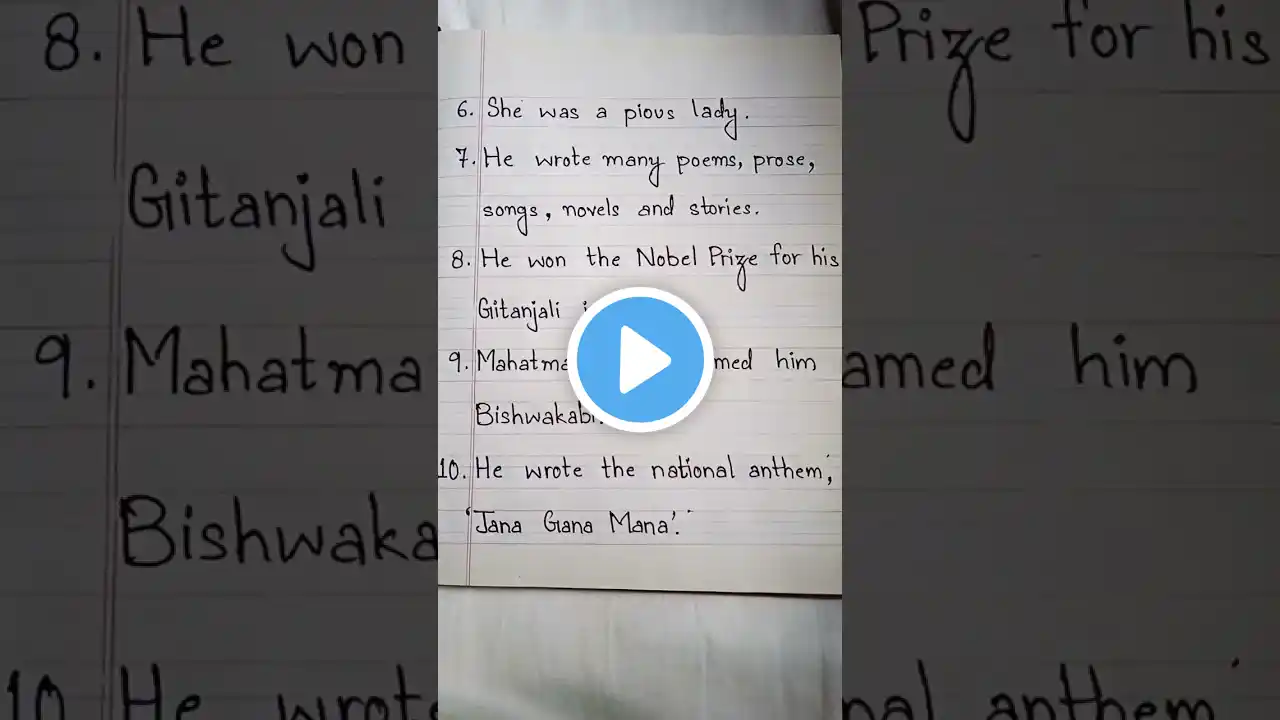 6. She was a pious lady.
7. He wrote many poems, prose,
songs, novels and stories.
8. He won the Nobel Prize for his
Gitanjali
9. Mahatma him
Bishwakabi.
10. He wrote the national anthem,
'Jana Gana Mana'.